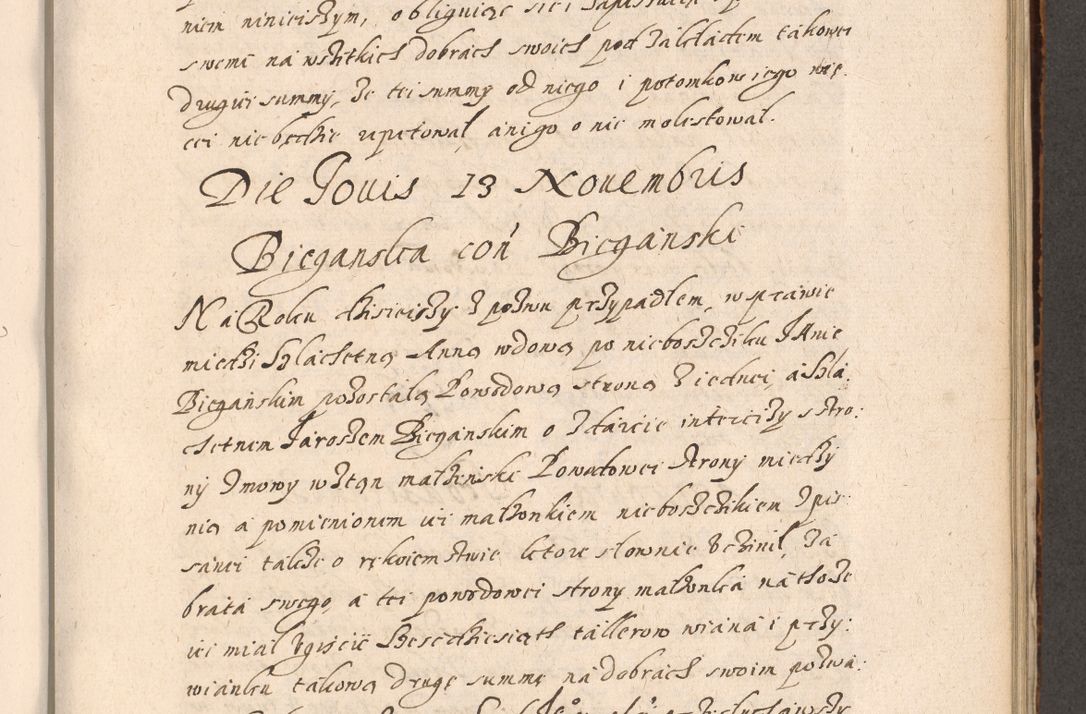 niem ninieiszym, obliguiąc się i
swemi na wszitkich dobrach swoich pod zakładem takowei
drugiei summy, że tei summy od niego i potomkow iego wię
cei nie będzie upetował, ani go o nię molestował.
Die Jouis 13 Nouembris
Bieganska con Bieganski
Na Roku dzisieiszy z pozwu przypadłem, w prawie
miedzi Szlachetną Anną wdową po nieboszcziku Janie
Bieganskim pozostałą Powodową stroną z iednei, a szla:
chetnem Jaroszem Bieganskim o zdarcie intercizy stro:
ny zmowy wstęn malzenski Powodowei strony miedzy
nią a pomienionem iei malzonkiem nieboszczikiem zpis
sanei także o rękoiemstwie ktore słownie uczinił, za
brata swego, a tei powodowei strony malzonka na tho że
iei miał iscić sześćdziesiąth tallerow wiana i przy:
wianku takową drugę summę na dobrach swoim pozwa: